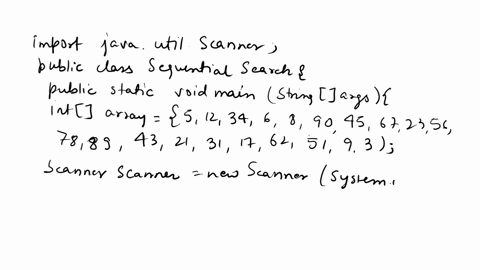 import java. util. Scanner;
public class Sequential Search{
public static void main (String []args){
int[] array = {5, 12, 34, 6, 8, 90, 45, 67, 23, 56,
78, 89, 43, 21, 31, 17, 62, 51, 9. 3 );
Scanner Scanner = new Scanner (System.